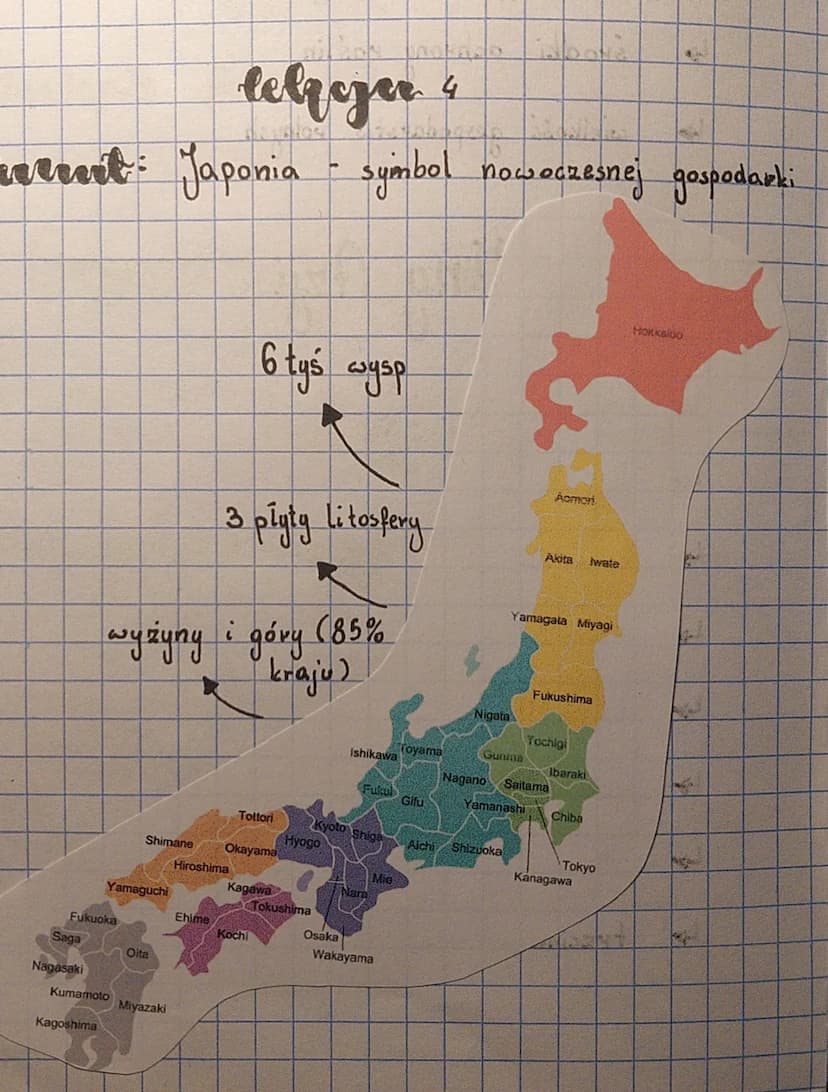 lekcja 4
temat: Japonia - symbol nowoczesnej gospodarki
6 tyś wysp
3 płyty litosfery
wyżyny i góry (85%
kraju)
Hokkaido
Aomori
Akita Iwate
Yamagata Miyagi
Fukushima
Nigata
Tochigi
Ishikawa Toyama Gunma
Ibaraki
Nagano Saitama
Fukui
Gifu Yamanashi
Chiba
Tottori
Kyoto Shiga
Shimane Okayama Hyogo
Aichi Shizuoka
Tokyo
Kanagawa
Hiroshima
Mie
Yamaguchi Kagawa Nara
Tokushima
Fukuoka Ehime
Kochi Osaka
Saga
Wakayama
Oita
Nagasaki
Kumamoto Miyazaki
Kagoshima